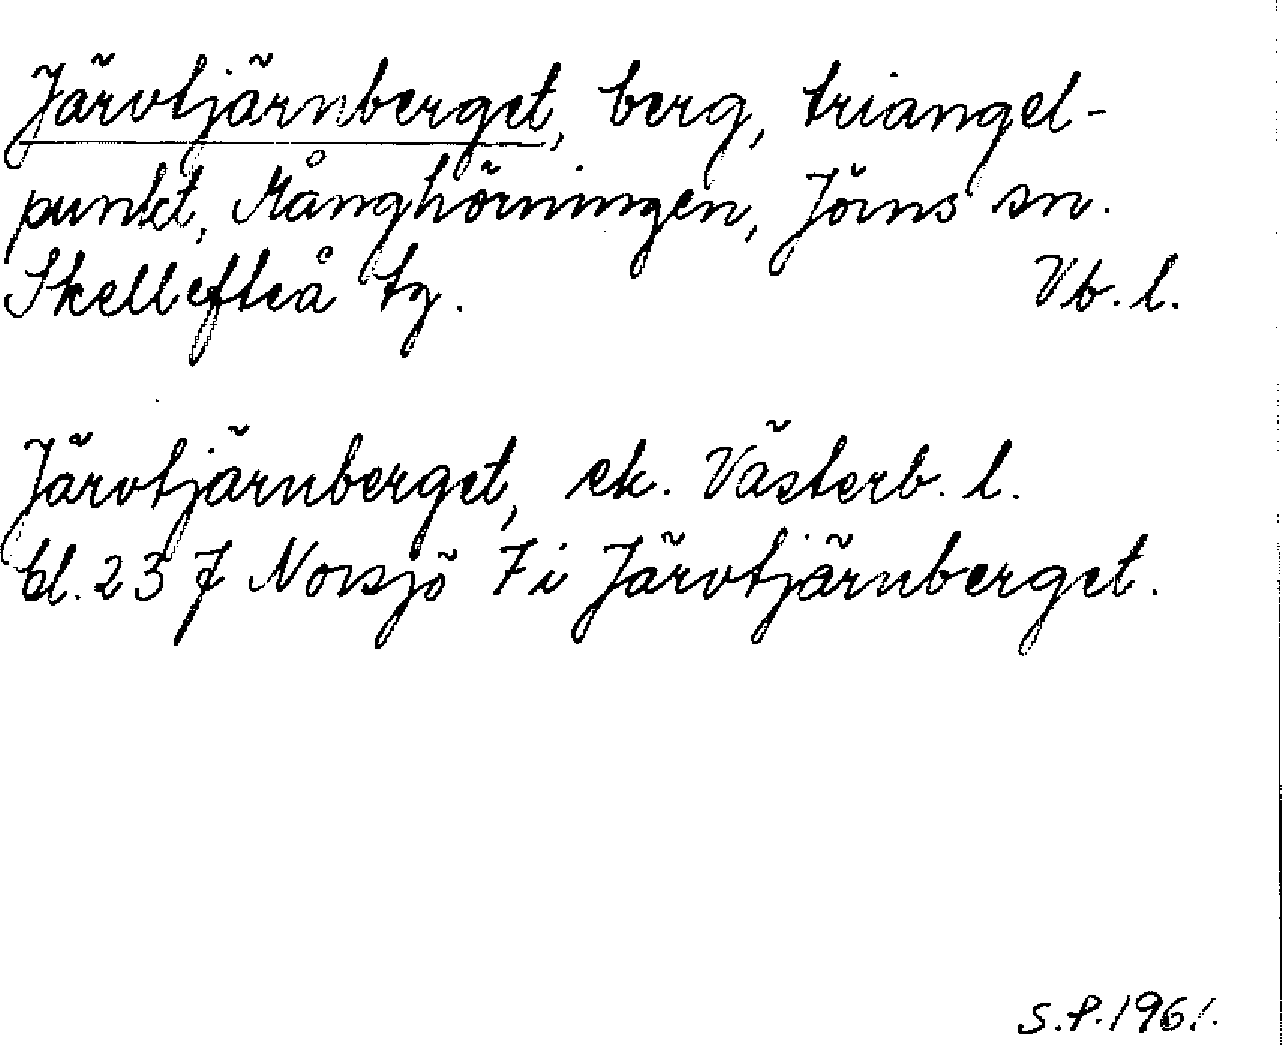 Järvtjärnberget, berg, triangel-
punkt, Månghörningen, Jörns sn.
Skellefteå tg. Vb. l.
Järvtjärnberget, ek. Västerb. l.
bl. 23 J Norsjö 7i Järvtjärnberget.
S.P. 1961.